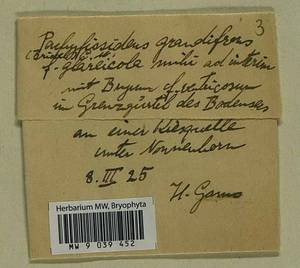 3
Pachyfissidens grandifrons
(Bridel)
f. glareicola mihi ad interim
mit Bryum cf. ventricosum
im Grenzgürtel des Bodensees
an einer Kiesquelle
unter Nonnenhorn
8. III 25
H. Gams
Herbarium MW, Bryophyta
MW 9 039 452